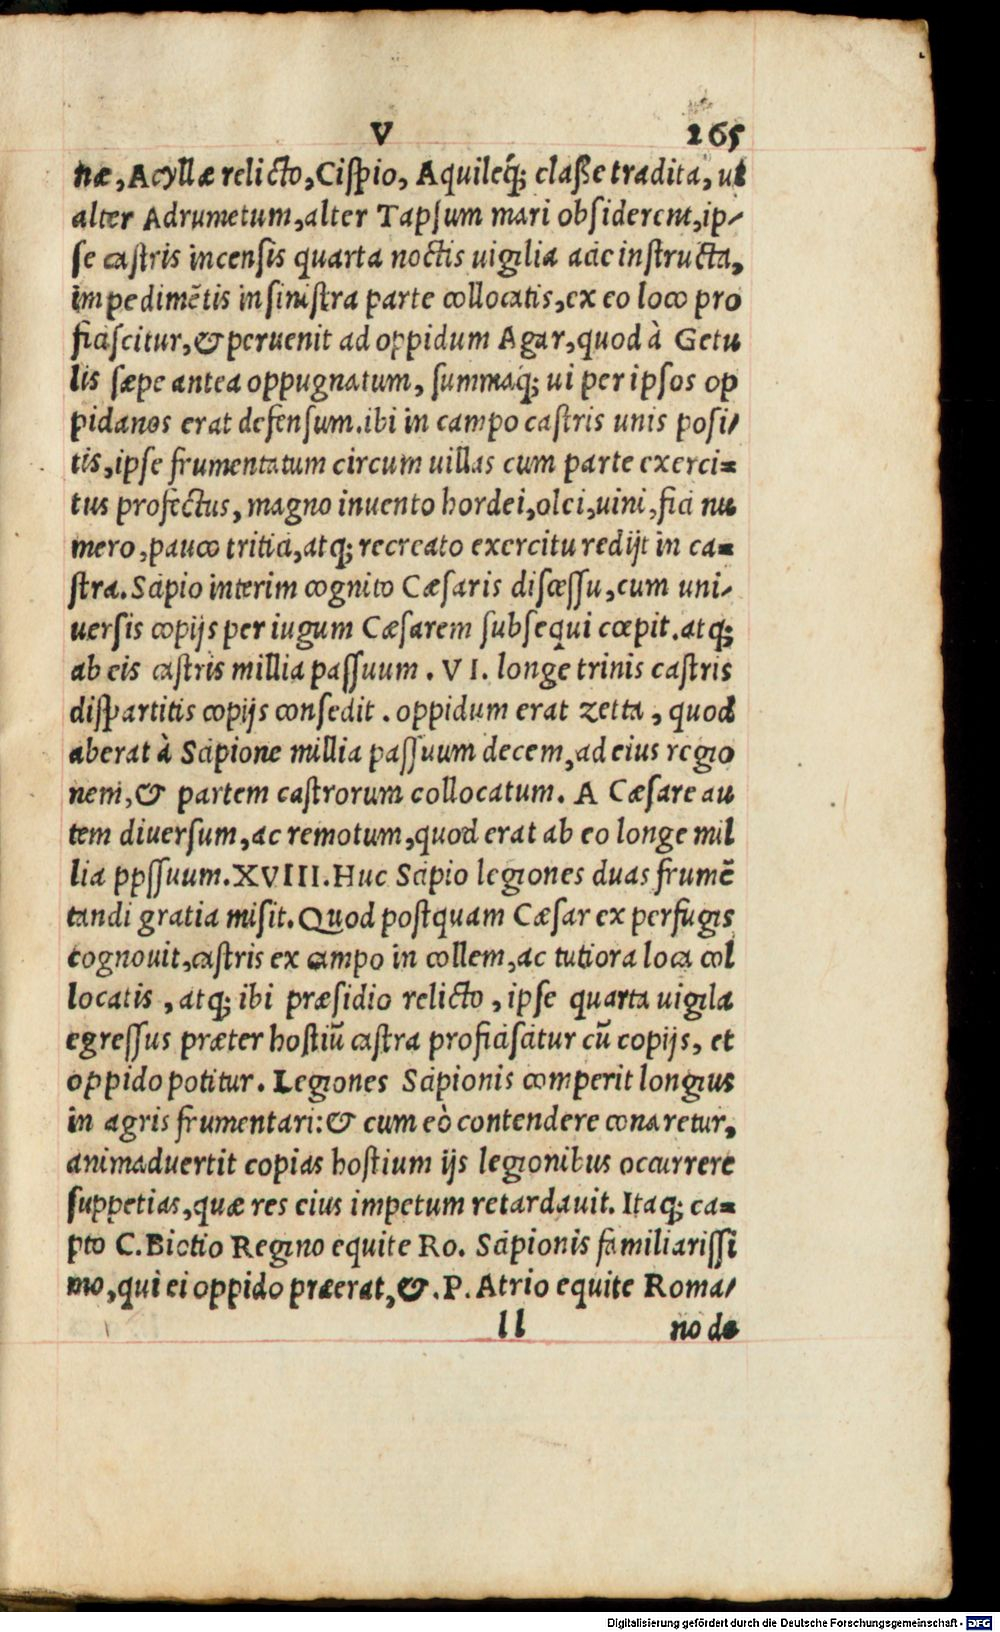 V 265
næ, Acyllæ relicto, Cispio, Aquileq́; claße tradita, ut
alter Adrumetum, alter Tapsum mari obsiderent, ip-
se castris incensis quarta noctis uigilia acie instructa,
impedimētis in sinistra parte collocatis, ex eo loco pro
ficiscitur, & peruenit ad oppidum Agar, quod à Getu
lis sæpe antea oppugnatum, summaq; ui per ipsos op
pidanos erat defensum. ibi in campo castris unis posi-
tis, ipse frumentatum circum uillas cum parte exerci-
tus profectus, magno inuento hordei, olei, uini, fici nu
mero, pauco tritici, atq; recreato exercitu redijt in ca-
stra. Scipio interim cognito Cæsaris discessu, cum uni-
uersis copijs per iugum Cæsarem subsequi cœpit. atq;
ab eis castris millia passuum. VI. longe trinis castris
dispartitis copijs consedit. oppidum erat zetta, quod
aberat à Scipione millia passuum decem, ad eius regio
nem, & partem castrorum collocatum. A Cæsare au
tem diuersum, ac remotum, quod erat ab eo longe mil
lia ppssuum. XVIII. Huc Scipio legiones duas frumē
tandi gratia misit. Quod postquam Cæsar ex perfugis
cognouit, castris ex campo in collem, ac tutiora loca col
locatis, atq; ibi præsidio relicto, ipse quarta uigila
egressus præter hostiū castra proficiscitur cū copijs, et
oppido potitur. Legiones Scipionis comperit longius
in agris frumentari: & cum eò contendere conaretur,
animaduertit copias hostium ijs legionibus occurrere
suppetias, quæ res eius impetum retardauit. Itaq; ca-
pto C. Bictio Regino equite Ro. Scipionis familiarissi
mo, qui ei oppido præerat, &. P. Atrio equite Roma-
ll no de
Digitalisierung gefördert durch die Deutsche Forschungsgemeinschaft - DFG